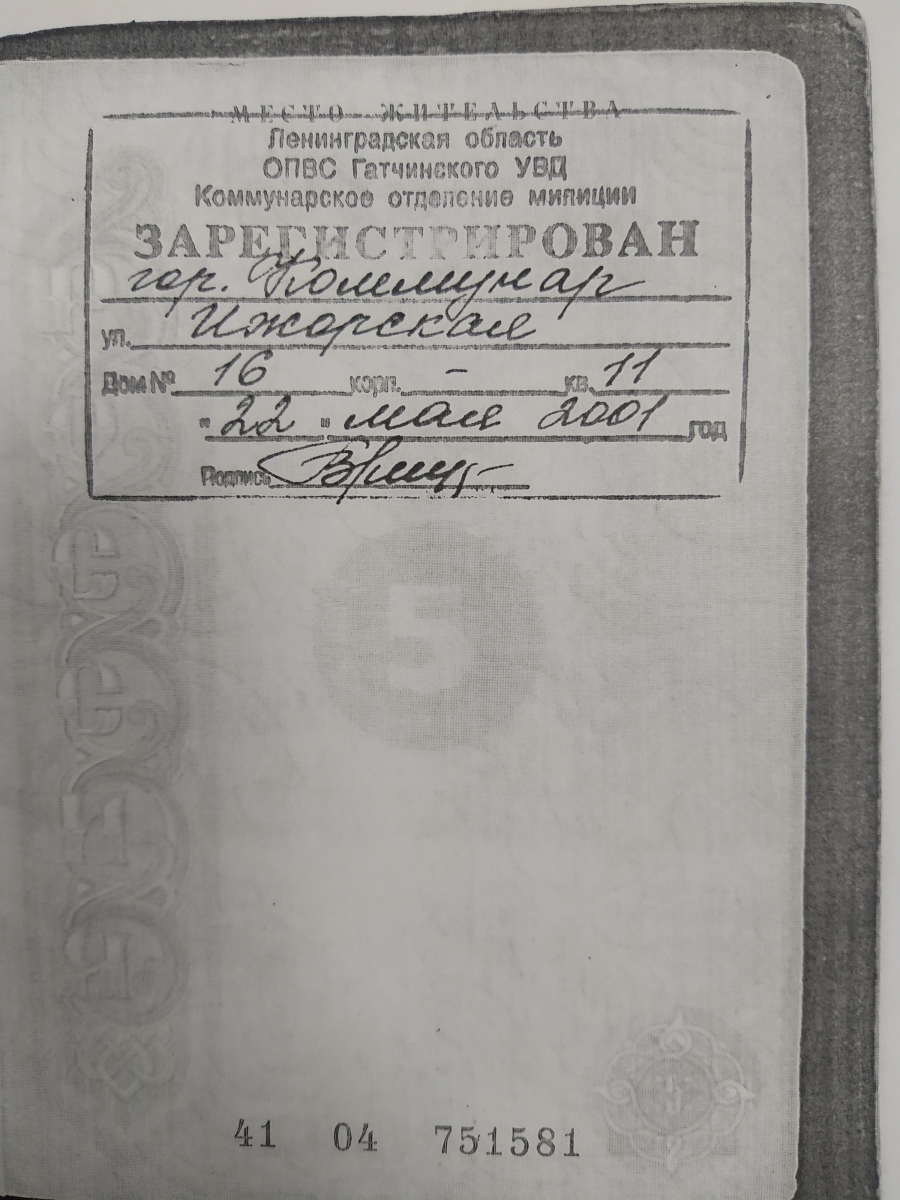 МЕСТО ЖИТЕЛЬСТВА
Ленинградская область
ОПВС Гатчинского УВД
Коммунарское отделение милиции
ЗАРЕГИСТРИРОВАН
гор. Коммунар
ул. Ижорская
Дом № 16 корп. – кв. 11
"22" мая 2001 год
Подпись
5
41 04 751581